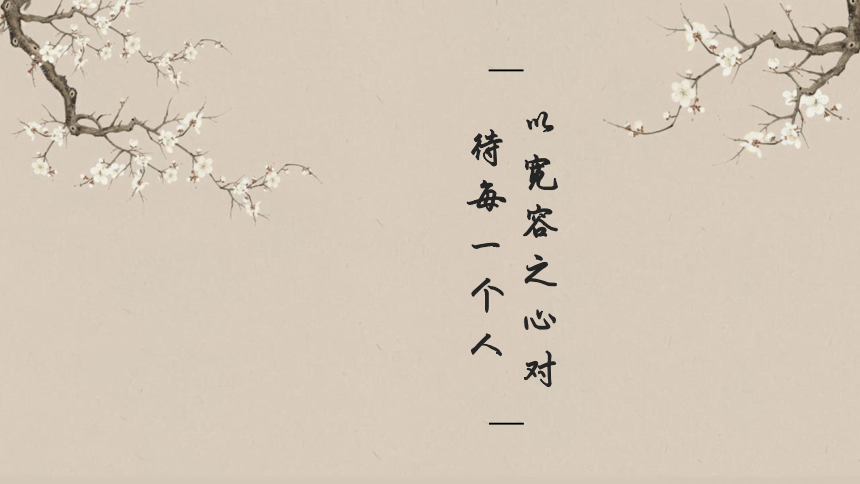 以宽容之心对
待每一个人